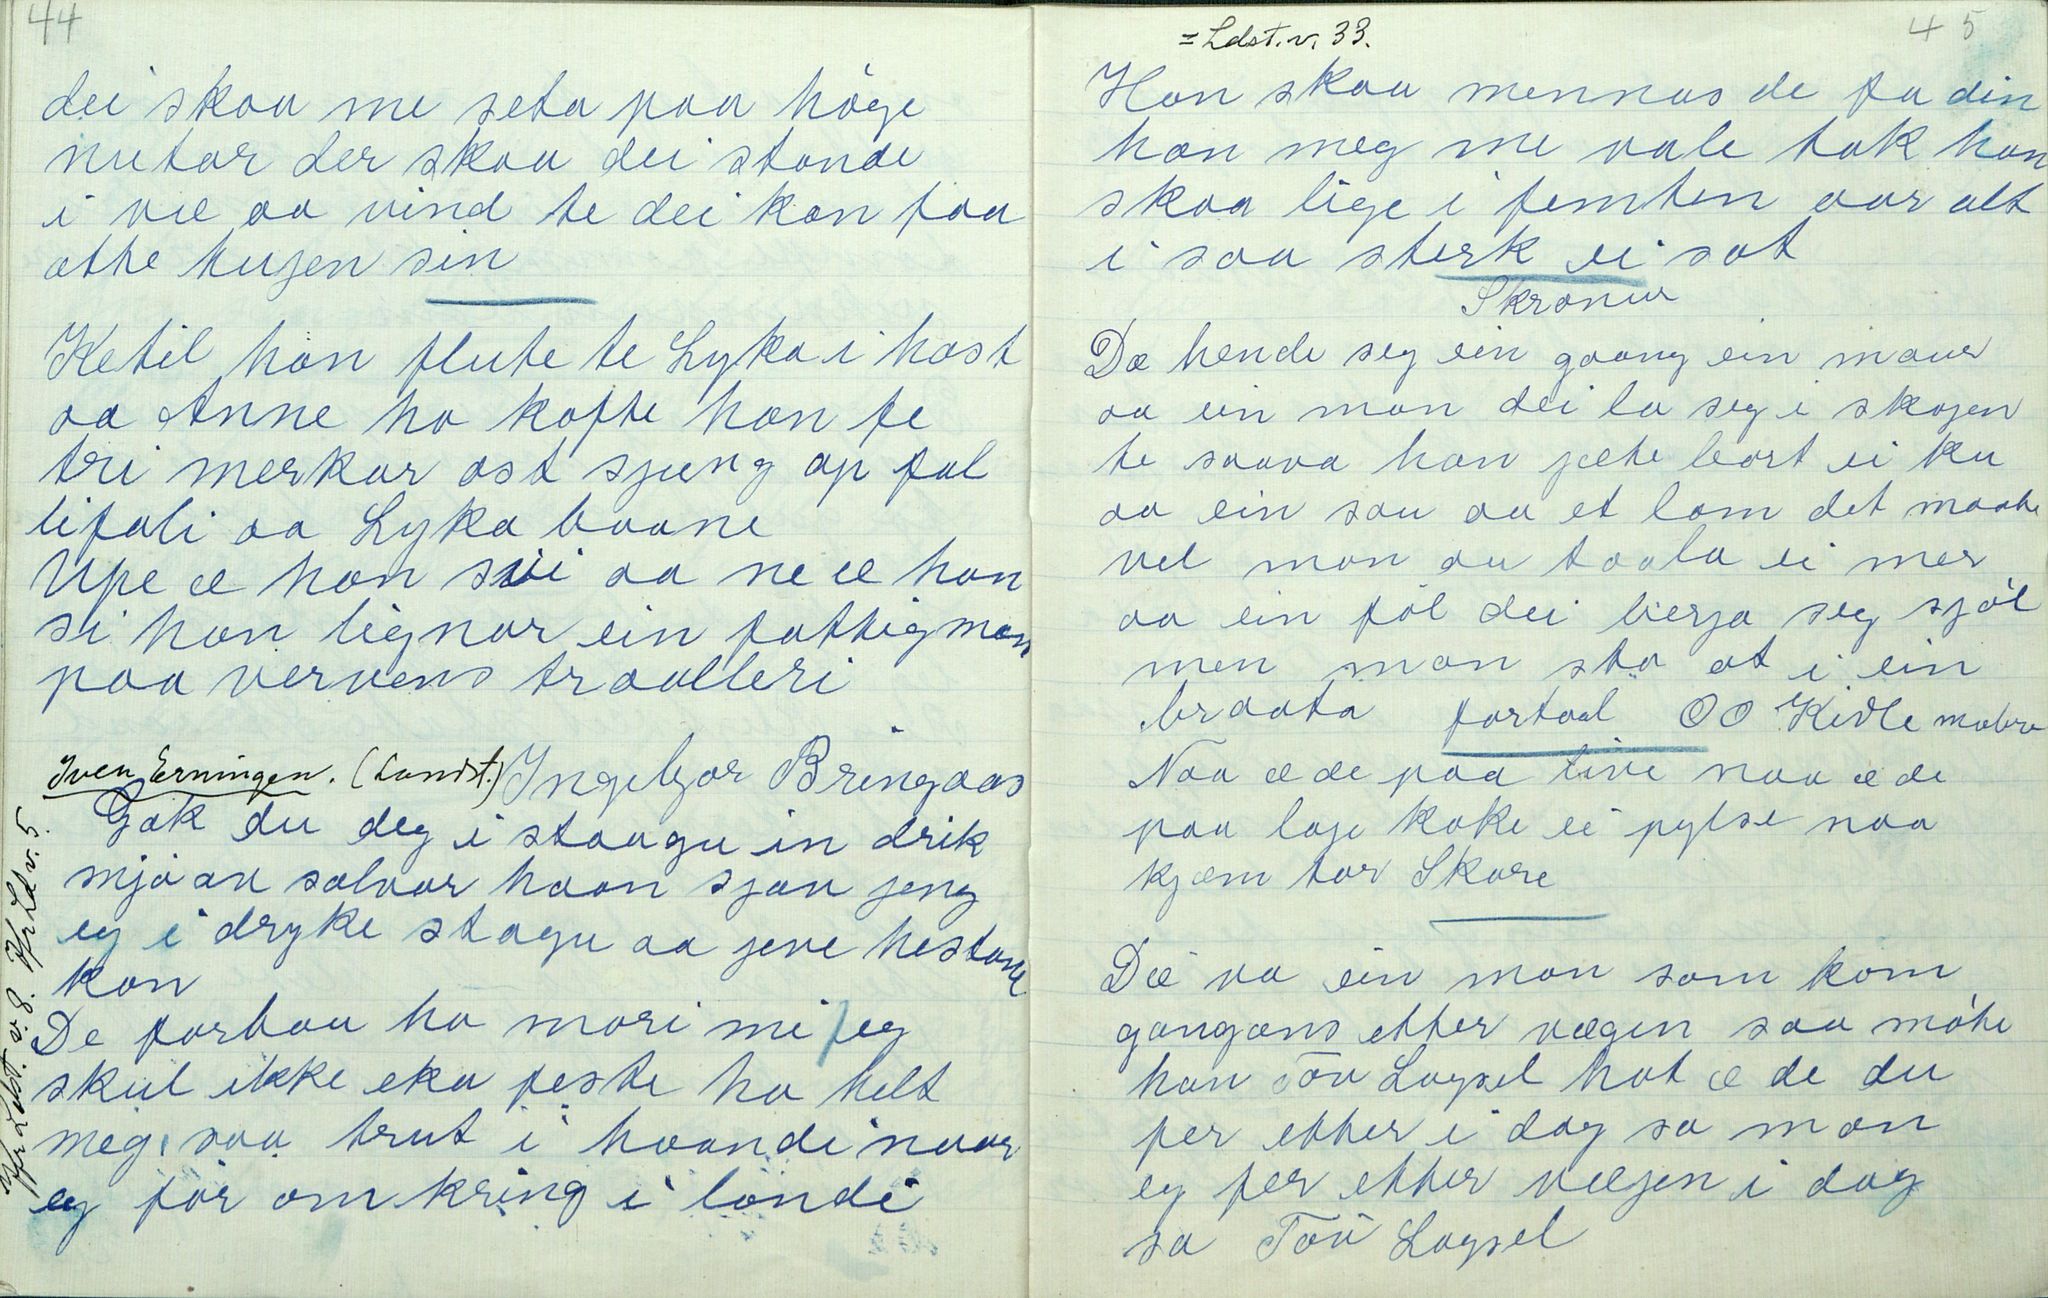 44
dei skaa me seta paa høge
nutar der skaa dei stande
i væ aa vind te dei kan faa
atte hugen sin
Ketil han flute te Lyka i hast
aa Anne ho kofte han fe
tri merkar ost sjung op fal
lifali aa Lyka baane
Upe æ han svi aa ne æ han
si han lignar ein fattig man
paa vervens traalleri
Iven Erningen. (Landst.) Ingebjor Bringaas
Gak du deg i staagu in drik
mjø au salvar haan sjau jeng
eg i dryke stagu aa jeve hestane
kan
De forbau ho mori mi eg
skul ikke eka feste ho helt
meg saa trut i haandi naar
eg før omkring i løndi
Jfr. Ldst. v. 8. Jfr. Ld v. 5.
45
= Ldst. v. 33.
Han skaa mennas de fa din
han meg me vale tak han
skaa lige i femten aar alt
i saa sterk ei sot
Skrønur
Dæ hende seg ein gaang ein maur
aa ein man dei la seg i skogen
te saava han jæte bort ei ku
aa ein sau aa et lam det maate
vel man au taala ei mer
aa ein føl dei berja seg sjøl
men man sto at i ein
braata fortaal OO Kivle mabro
Naa æ de paa live naa æ de
paa laje koke ei pylse naa
kjæm tar Skare
Dæ va ein man som kom
gangans etter vægen saa møte
han Tov Laysel hat æ de du
fer etter i dag sa man
eg fer etter vægen i dag
sa Tov Laysel